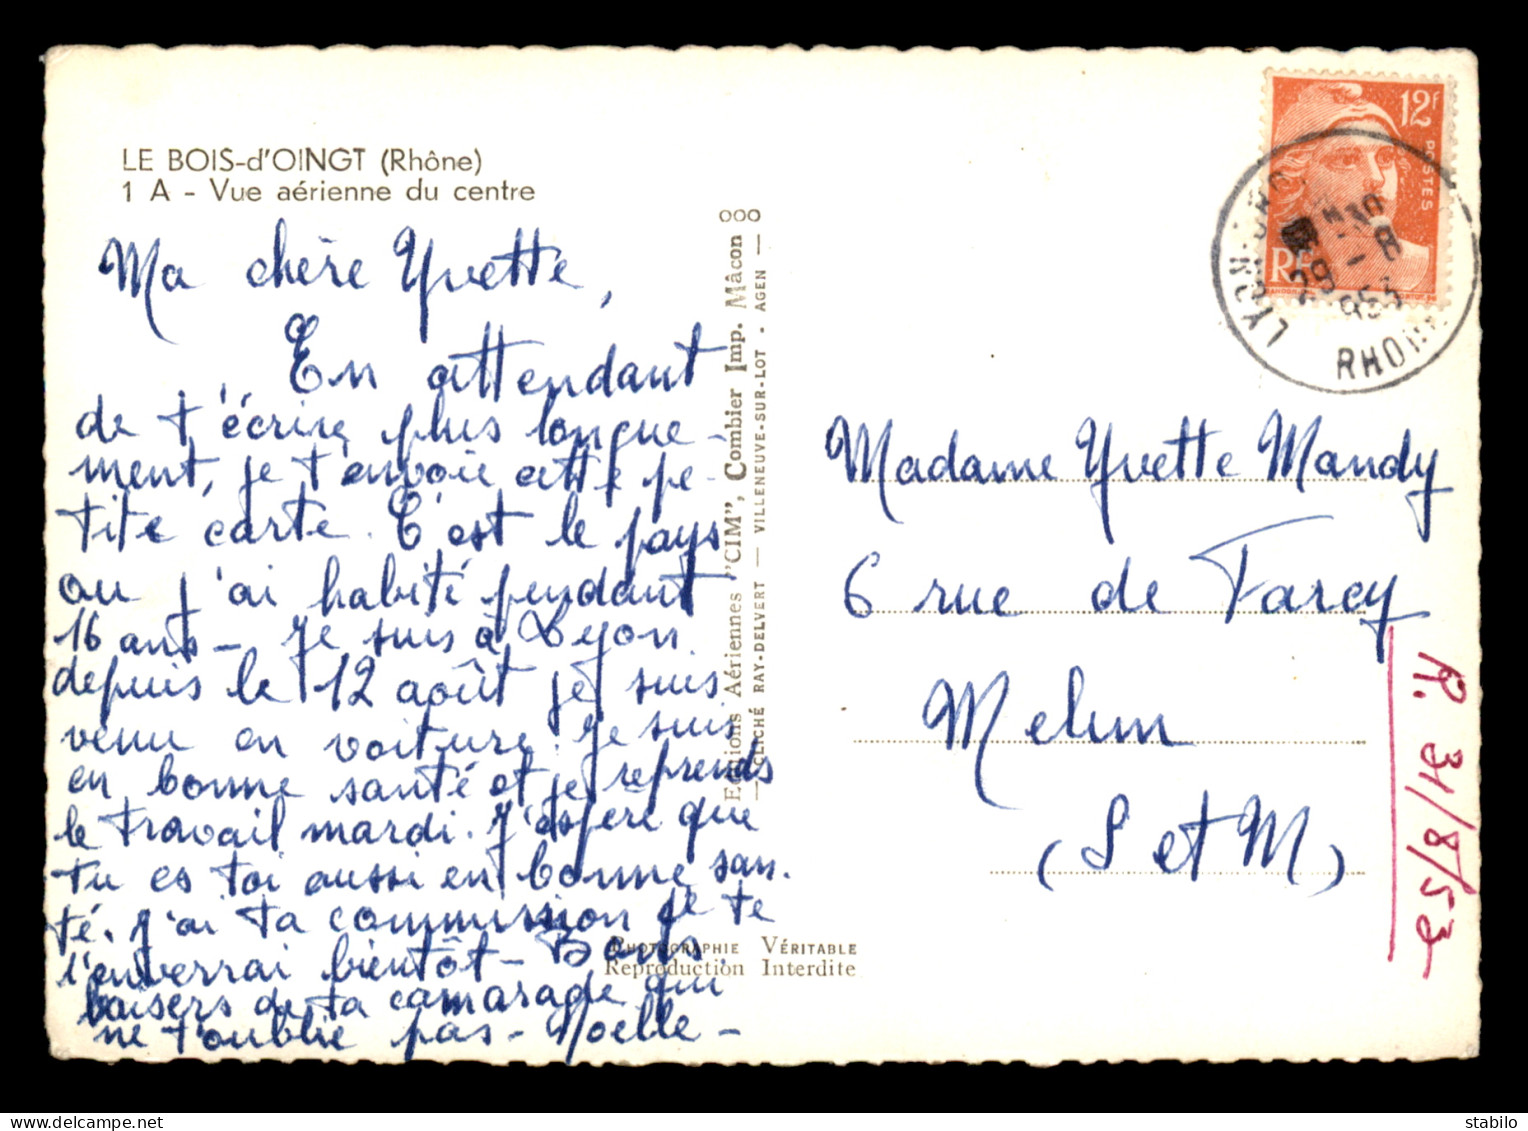 LE BOIS-d'OINGT (Rhône)
1 A - Vue aérienne du centre
Ma chère Yvette,
En attendant
de t'écrire plus longue-
ment, je t'envoie cette pe-
tite carte. C'est le pays
ou j'ai habité pendant
16 ans - Je suis à Lyon
depuis le 12 août je suis
venu en voiture. Je suis
en bonne santé et je reprends
le travail mardi. J'espère que
tu es toi aussi en bonne san.
té. J'ai ta commission je te
l'enverrai bientôt - Bons
baisers de ta camarade qui
ne t'oublie pas - Noelle -
Editions Aériennes "CIM", Combier Imp. Mâcon ooo
CLICHÉ RAY-DELVERT — VILLENEUVE-SUR-LOT - AGEN —
PHOTOGRAPHIE VÉRITABLE
Reproduction Interdite
12F
POSTES
RF
LYON
29 - 8
953
RHONE
Madame Yvette Mandy
6 rue de Farcy
Melun
(S et M)
R. 31/8/53
stabilo